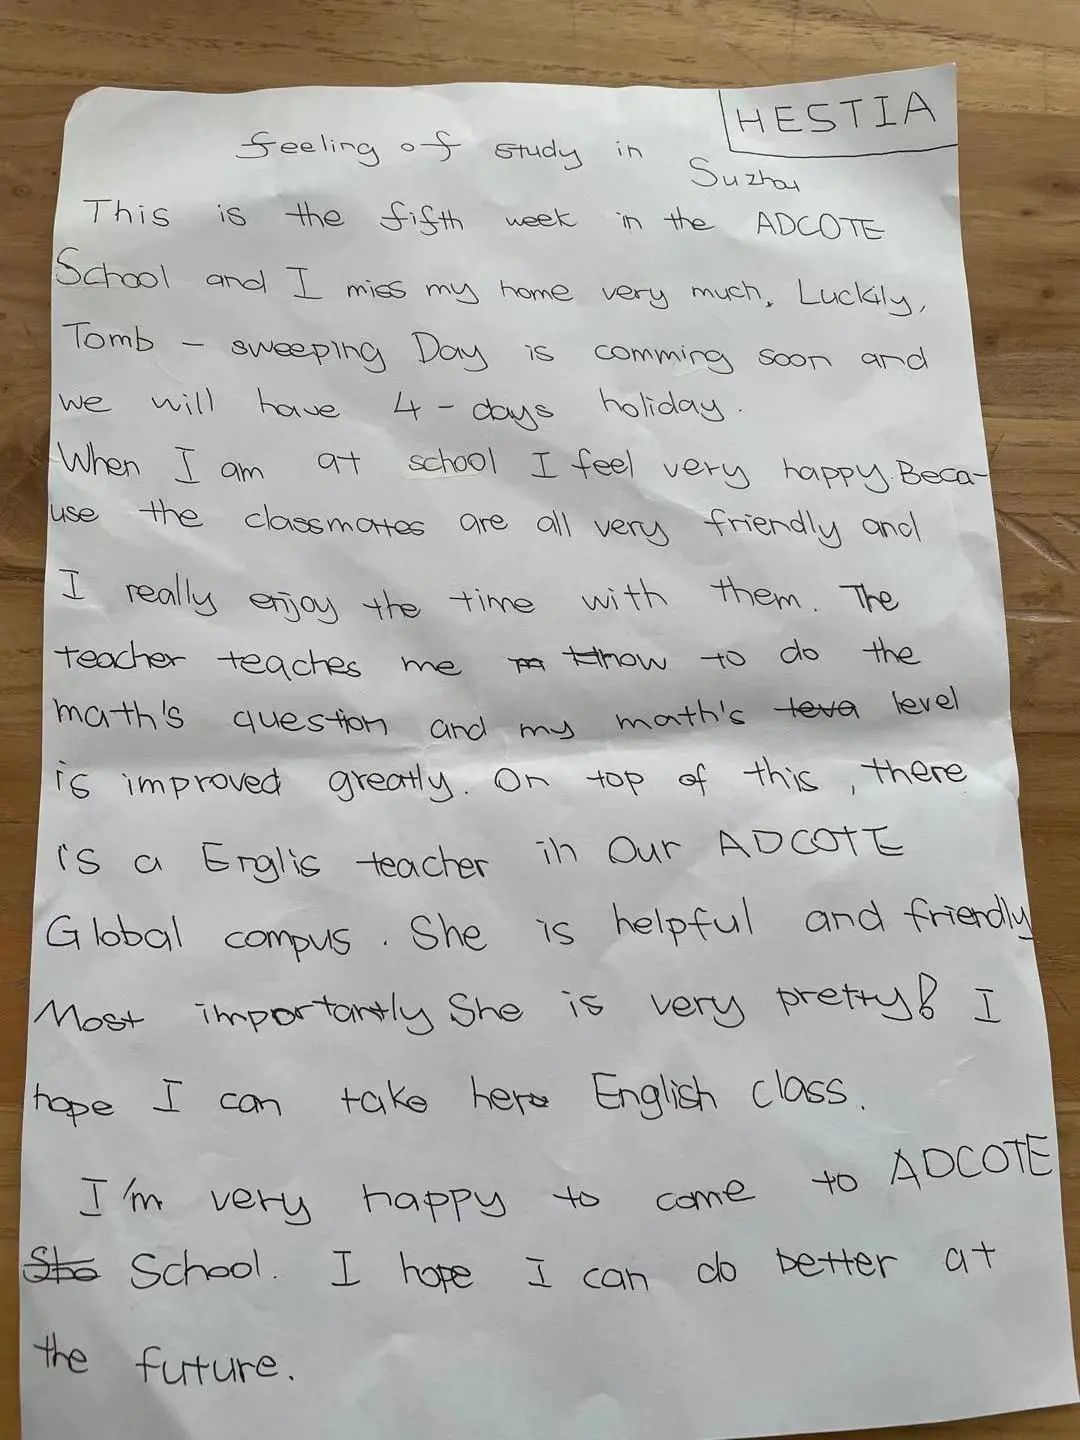 HESTIA
feeling of study in
Suzhou
This is the fifth week in the ADCOTE
School and I miss my home very much. Luckily,
Tomb - sweeping Day is comming soon and
we will have 4 - days holiday.
When I am at school I feel very happy. Beca-
use the classmates are all very friendly and
I really enjoy the time with them. The
teacher teaches me how to do the
math's question and my math's level
is improved greatly. On top of this, there
is a Englis teacher in Our ADCOTE
Global compus. She is helpful and friendly
Most importantly She is very pretty! I
hope I can take here English class.
I'm very happy to come to ADCOTE
School. I hope I can do better at
the future.